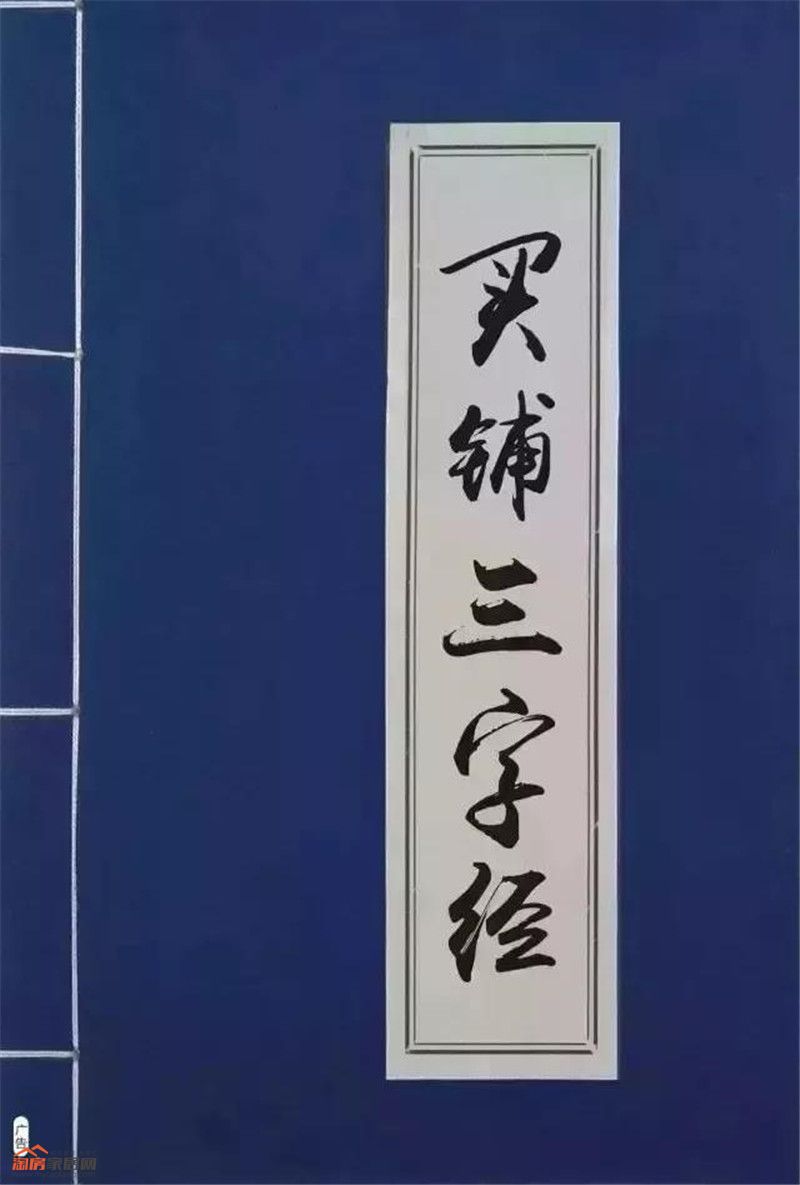 买铺三字经
广告
淘房家居网